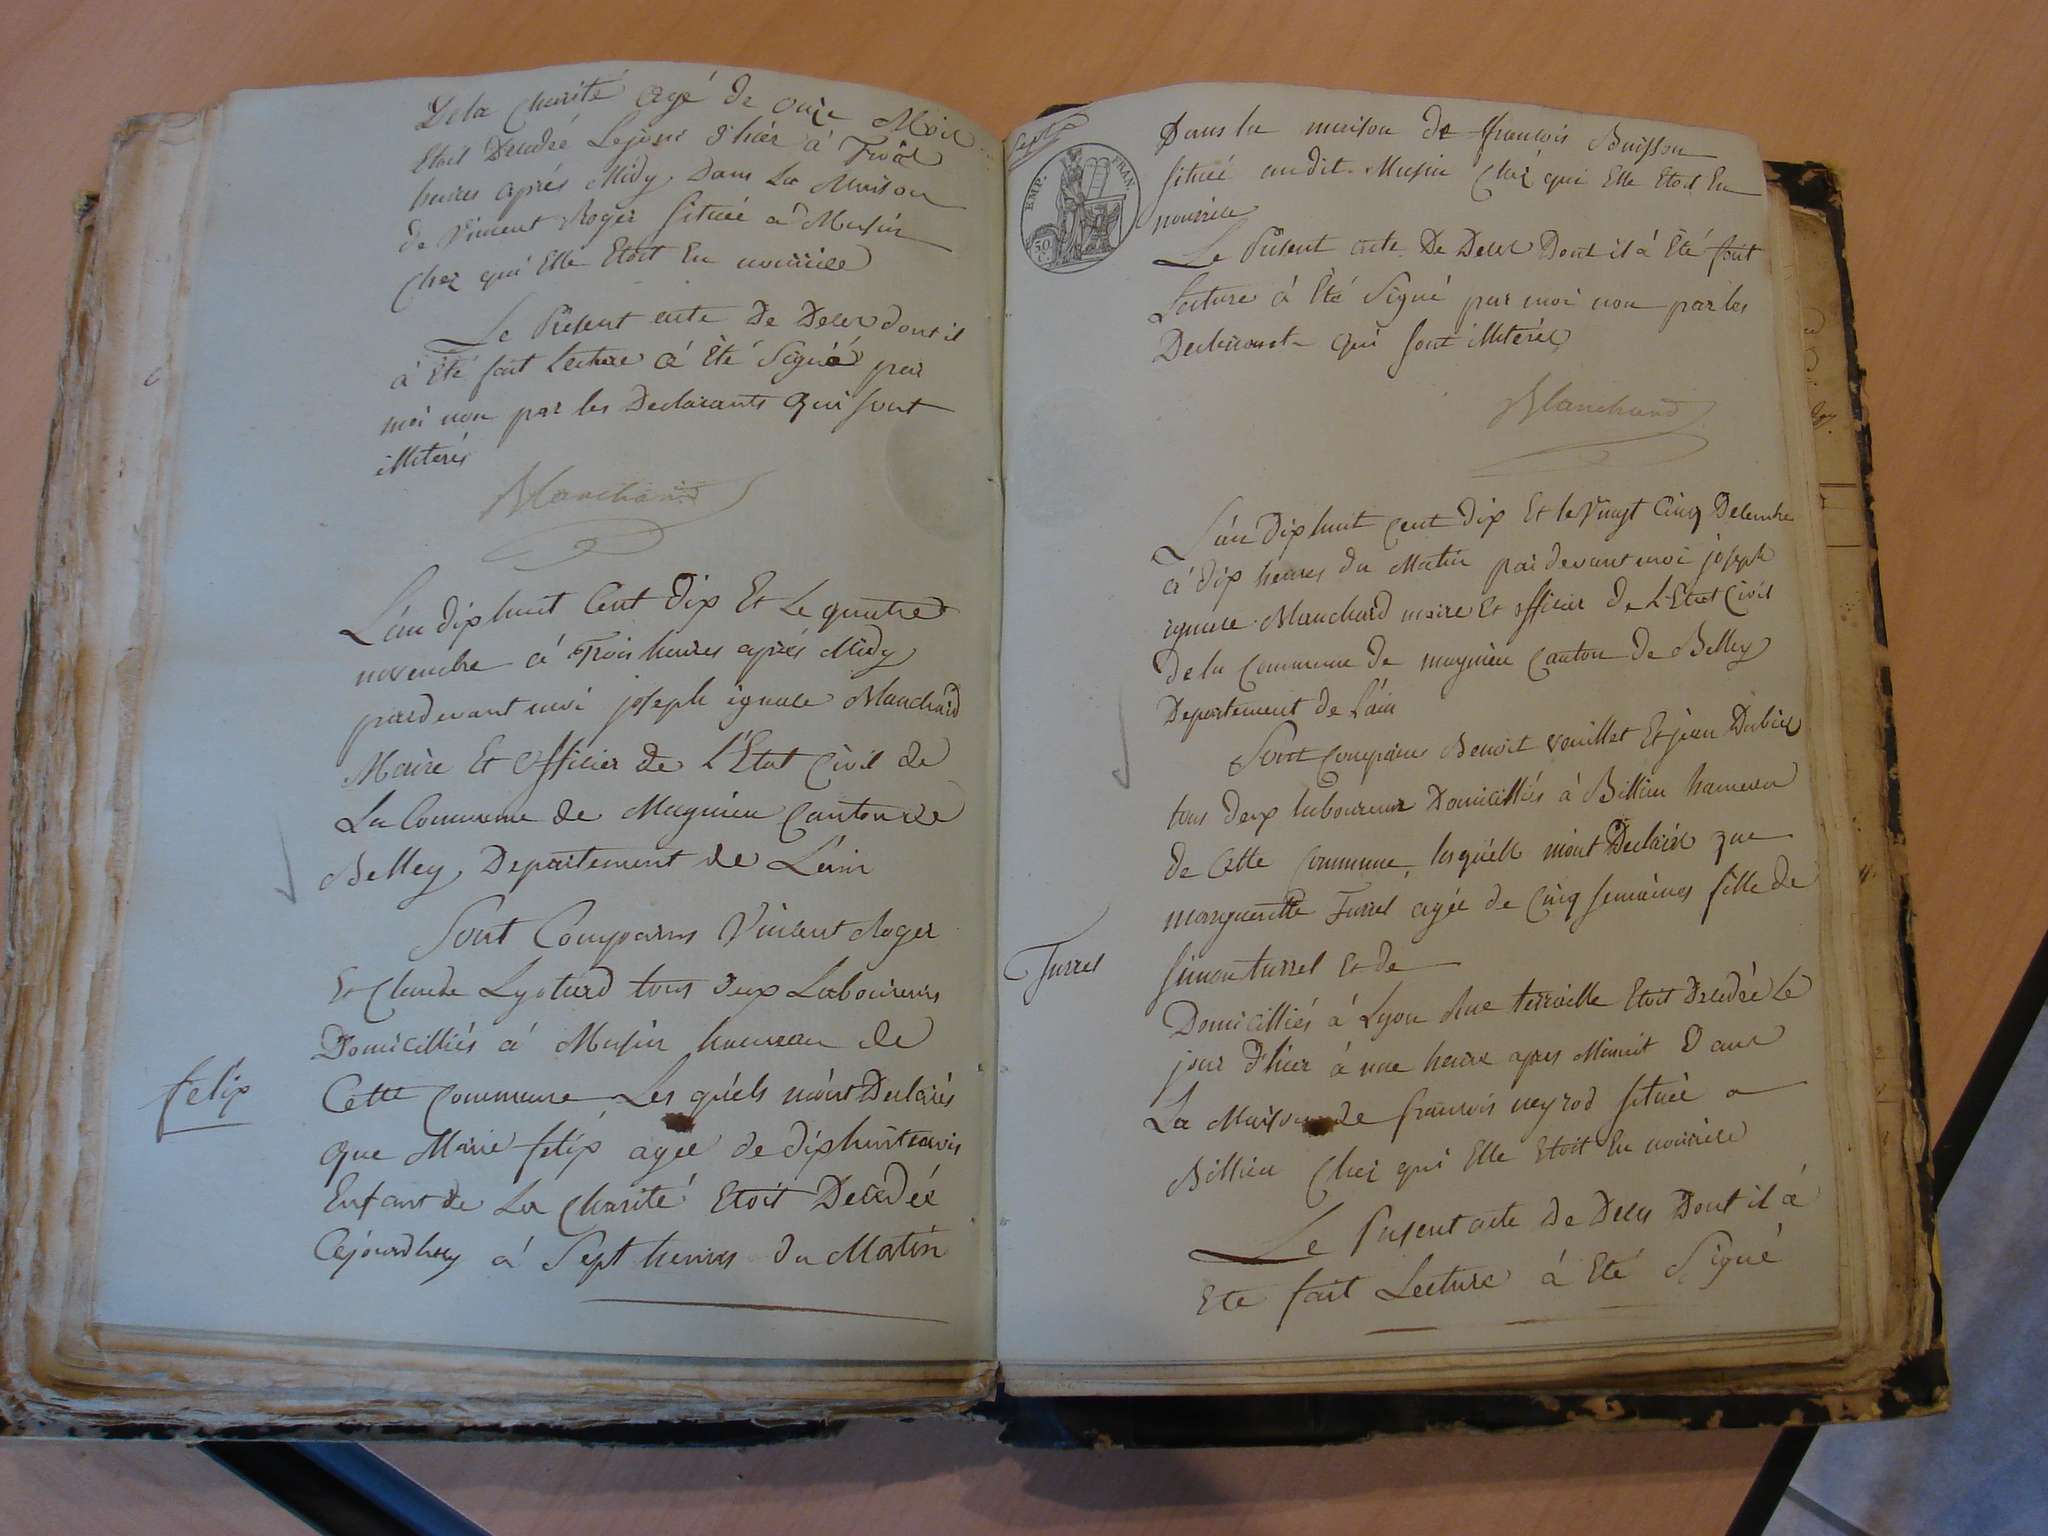 De la Charité agé de onze Mois
Etoit Decedée Le jour d'hier à Trois
heures aprés Midy Dans La Maison
de Vincent Roger Située a Musin
Chez qui Elle Etoit En nourrice
Le Présent acte De Deces dont il
à Eté fait Lecture à Eté Signé par
moi non par les Declarants Qui sont
illiterés
Marchand
L'an dix huit Cent Dix Et Le quatre
novembre à Trois heures aprés Midy
pardevant moi joseph ignace Marchand
Maire Et Officier de L'Etat Civil de
La Commune de Magnieu Canton de
Belley, Departement de L'ain
Sont Comparus Vincent Roger
Et Claude Lyotard tous deux Laboureurs
Domicilliés à Musin hameau de
felix
Cette Commune Les quels m'ont Declarés
que Marie felix agée de dix huit mois
Enfant de La Charité Etoit Decedée
Cejourdhuy à Sept heures du Matin
Dans la maison de francois Buisson
Située au dit Musin Chez qui Elle Etoit En
nourrice
EMP. FRAN.
50 C.
Le Présent acte De Deces Dont il à Eté fait
Lecture à Eté Signé par moi non par les
Declarants Qui sont illiterés
Marchand
L'an Dix huit Cent Dix Et le Vingt Cinq Decembre
à Dix heures du Matin pardevant moi joseph
ignace Marchand maire Et officier De L'Etat Civil
De la Commune de magnieu Canton de Belley
Departement de L'ain
Sont Comparus Benoit Vuillet Et jean
tous deux laboureurs Domicilliés à Billieu hameau
de Cette Commune, lesquels m'ont Declarés que
margueritte Turrel agée de Cinq semaines fille de
Turrel
Simon turrel et de
Domicilliés à Lyon Rue terraille Etoit Decedée Le
jour d'hier à une heure apres Minuit Dans
La Maison de francois neyrod Située a
Billieu Chez qui Elle Etoit En nourrice
Le Présent acte De Deces Dont il à
Eté fait Lecture à Eté Signé